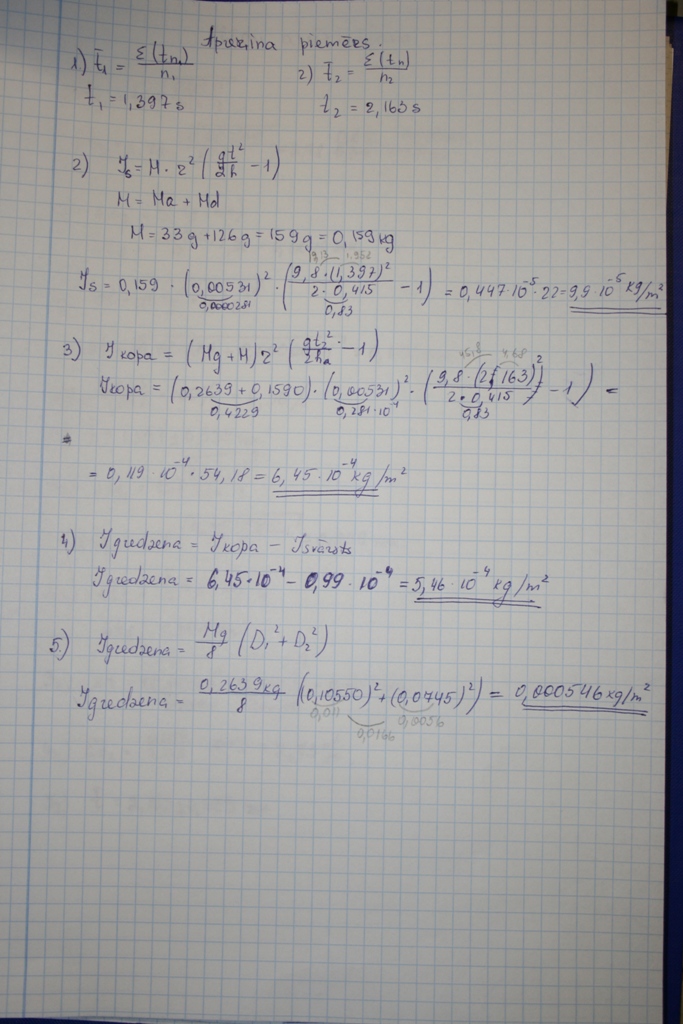 Aprēķina piemērs.
1) t̄₁ = Σ(tn₁)/n₁ 2) t̄₂ = Σ(tn)/n₂
t₁ = 1,397 s t₂ = 2,163 s
2) Is = M · r² (gt²/2h − 1)
M = Ma + Md
M = 33 g + 126 g = 159 g = 0,159 kg
19,13 1.952
Is = 0,159 · (0,00531)² · (9,8 · (1,397)²/2 · 0,415 − 1) = 0,447·10⁻⁵ · 22 = 9,9 · 10⁻⁵ kg/m²
0,0000281 0,83
3) I kopā = (Mg + M) r² (gt₂²/2ha − 1)
45,8 4,68
Ikopā = (0,2639 + 0,1590) · (0,00531)² · (9,8 · (2,163)²/2 · 0,415 − 1) =
0,4229 0,281·10⁻⁴ 0,83
= 0,119 · 10⁻⁴ · 54,18 = 6,45 · 10⁻⁴ kg/m²
4) Igredzena = Ikopā − Isvārsts
Igredzena = 6,45·10⁻⁴ − 0,99 · 10⁻⁴ = 5,46 · 10⁻⁴ kg/m²
5.) Igredzena = Mg/8 (D₁² + D₂²)
Igredzena = 0,2639 kg/8 ((0,10550)² + (0,0745)²) = 0,000546 kg/m²
0,011 0,0056
0,0166